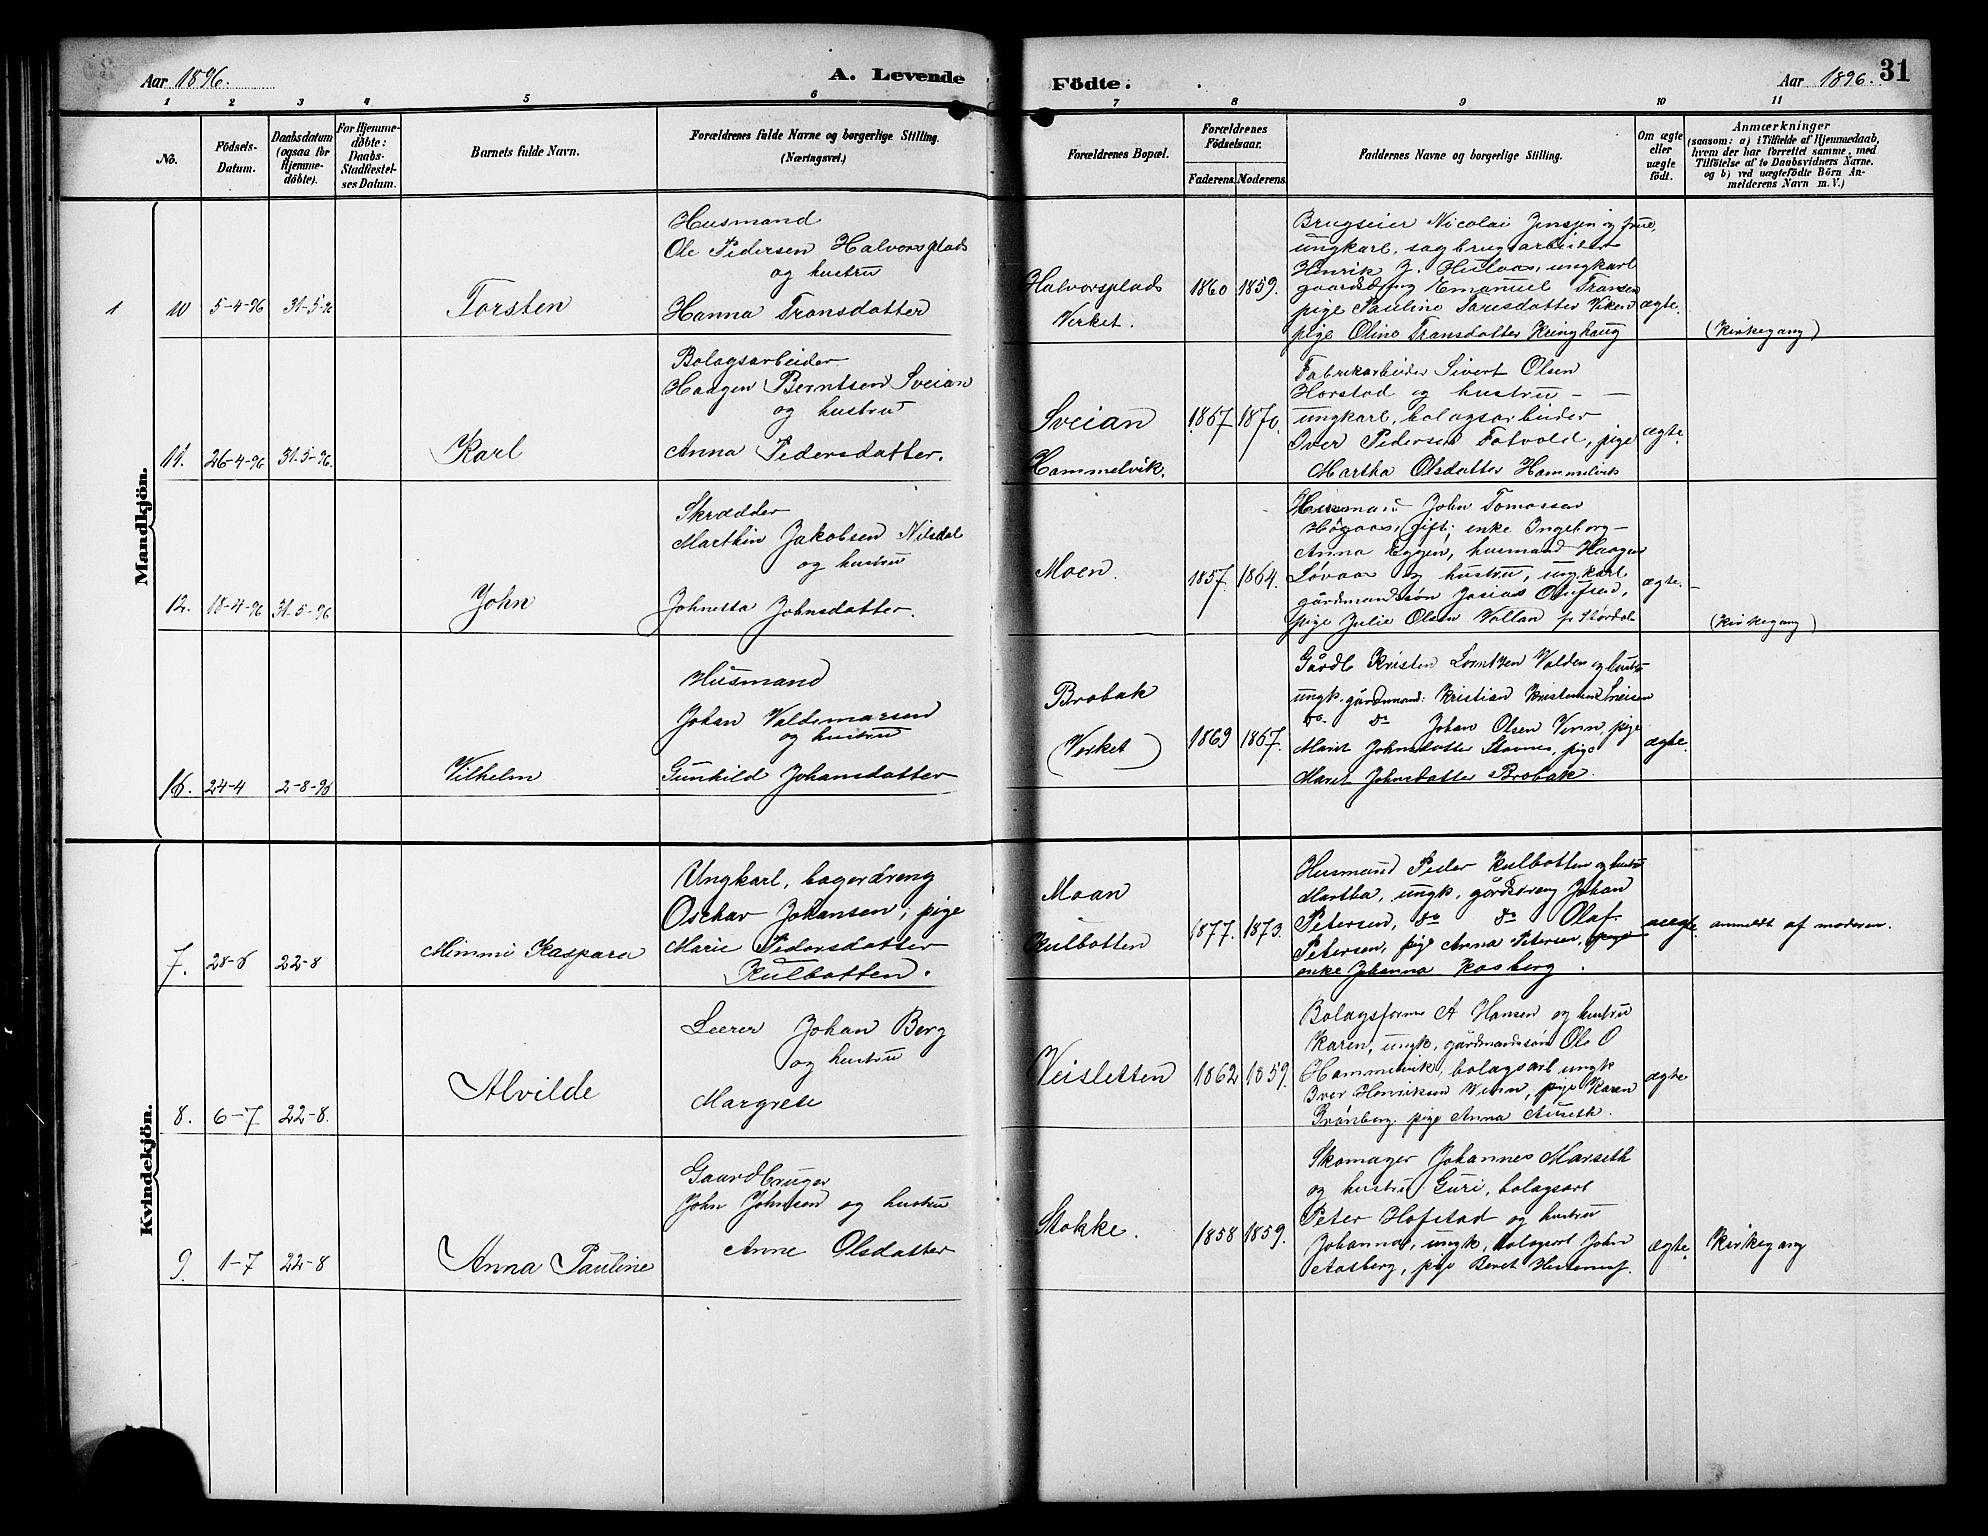 Aar 1896.
A. Levende
Födte.
Aar 1896.
31
1 2 3 4 5 6 7 8 9 10 11
No.
Födsels-
Datum.
Daabsdatum
(ogsaa for
Hjemme-
döbte).
For Hjemme-
döbte:
Daabs-
Stadfæstel-
ses Datum.
Barnets fulde Navn.
Forældrenes fulde Navne og borgerlige Stilling.
(Næringsvei.)
Forældrenes Bopæl.
Forældrenes
Födselsaar.
Faderens. Moderens.
Faddernes Navne og borgerlige Stilling.
Om ægte
eller
uægte
födt.
Anmærkninger
(saasom: a) i Tilfælde af Hjemmedaab,
hvem der har forrettet samme, med
Tilföielse af to Daabsvidners Navne.
og b) ved uægtefödte Börn An-
melderens Navn m. V.)
Mandkjön.
1
10 5-4-96 31-5-96
Torsten
Husmand
Ole Pedersen Halvorsplads
og hustru
Hanna Transdatter
Halvorsplads
Virket.
1860 1859.
Brugseier Nicolai Jenssen og frue,
ungkarl, sagbrugsarbeider
Henrik J. ungkarl
Emanuel Transen
pige Pauline Viken
pige Oline Transdatter Kringhaug
ægte.
(Kirkegang)
11. 26-4-96 31-5-96.
Karl
Bolagsarbeider
Haagen Berntsen Sveian
og hustru
Anna Pedersdatter.
Sveian
Hammelvik.
1867 1870.
Fabrikarbeider Sivert Olsen
Horstad og hustru -
ungkarl, bolagsarbeider
Iver Pedersen Fotvold, pige
Martha Olsdatter Hammelvik
ægte.
12. 18-4-96 31-5-96
John
Skrædder
Marthin Jakobsen Nilsdal
og hustru
Johnetta Johnsdatter.
Moen.
1857. 1864.
Husmand John Tomassen
Høgaas, gift; enke Ingeborg-
Anna Eggen, husmand Haagen
Løvaas og hustru, ungkarl
gårdmandssøn Josias
pige Julie Olsen Vollan
ægte.
(Kirkegang)
16. 24-4 2-8-96
Vilhelm
Husmand
Johan Valdemarsen
og hustru
Gunhild Johansdatter
Brobak
(Verket)
1869 1867.
Gårdb Kristen Lorntzen Valden og hustru
ungk. gårdmand: Kristian
do. do Johan Olsen Venn, pige
Maret Johnsdatter Stavnes, pige
Maret Johnsdatter Brobak.
ægte.
Kvindekjön.
7. 28-6 22-8
Mimmi Kaspara
Ungkarl, bagerdreng
Oschar Johansen, pige
Marie Pedersdatter
Kulbotten.
Moan
Kulbotten
1877. 1873.
Husmand Peder Kulbotten og hustru
Martha, ungk, gårdsdreng Johan
Petersen, do do Olaf
Petersen, pige Anna Petersen, pige
enke Johanna Kosberg.
uægte.
anmeldt af moderen.
8. 6-7 22-8.
Alvilde
Lærer Johan Berg
og hustru
Margrete
Veisletten
1862 1859.
Bolagsform A Hansen og hustru
Karen, ungk, gårdmandssøn Ole O
Hammelvik, bolagsarb ungk
Iver Henriksen Venn, pige Karen
Grönberg, pige Anna Auseth.
ægte
9. 1-7 22-8
Anna Pauline
Gaardbruger
John Johnsen og hustru
Anne Olsdatter
Stokke.
1858 1859.
Skomager Johannes Marseth
og hustru Guri, bolagsarb
Peter Hofstad og hustru
Johanna, ungk, bolagsarb John
Aasberg, pige Beret
ægte.
Kirkegang